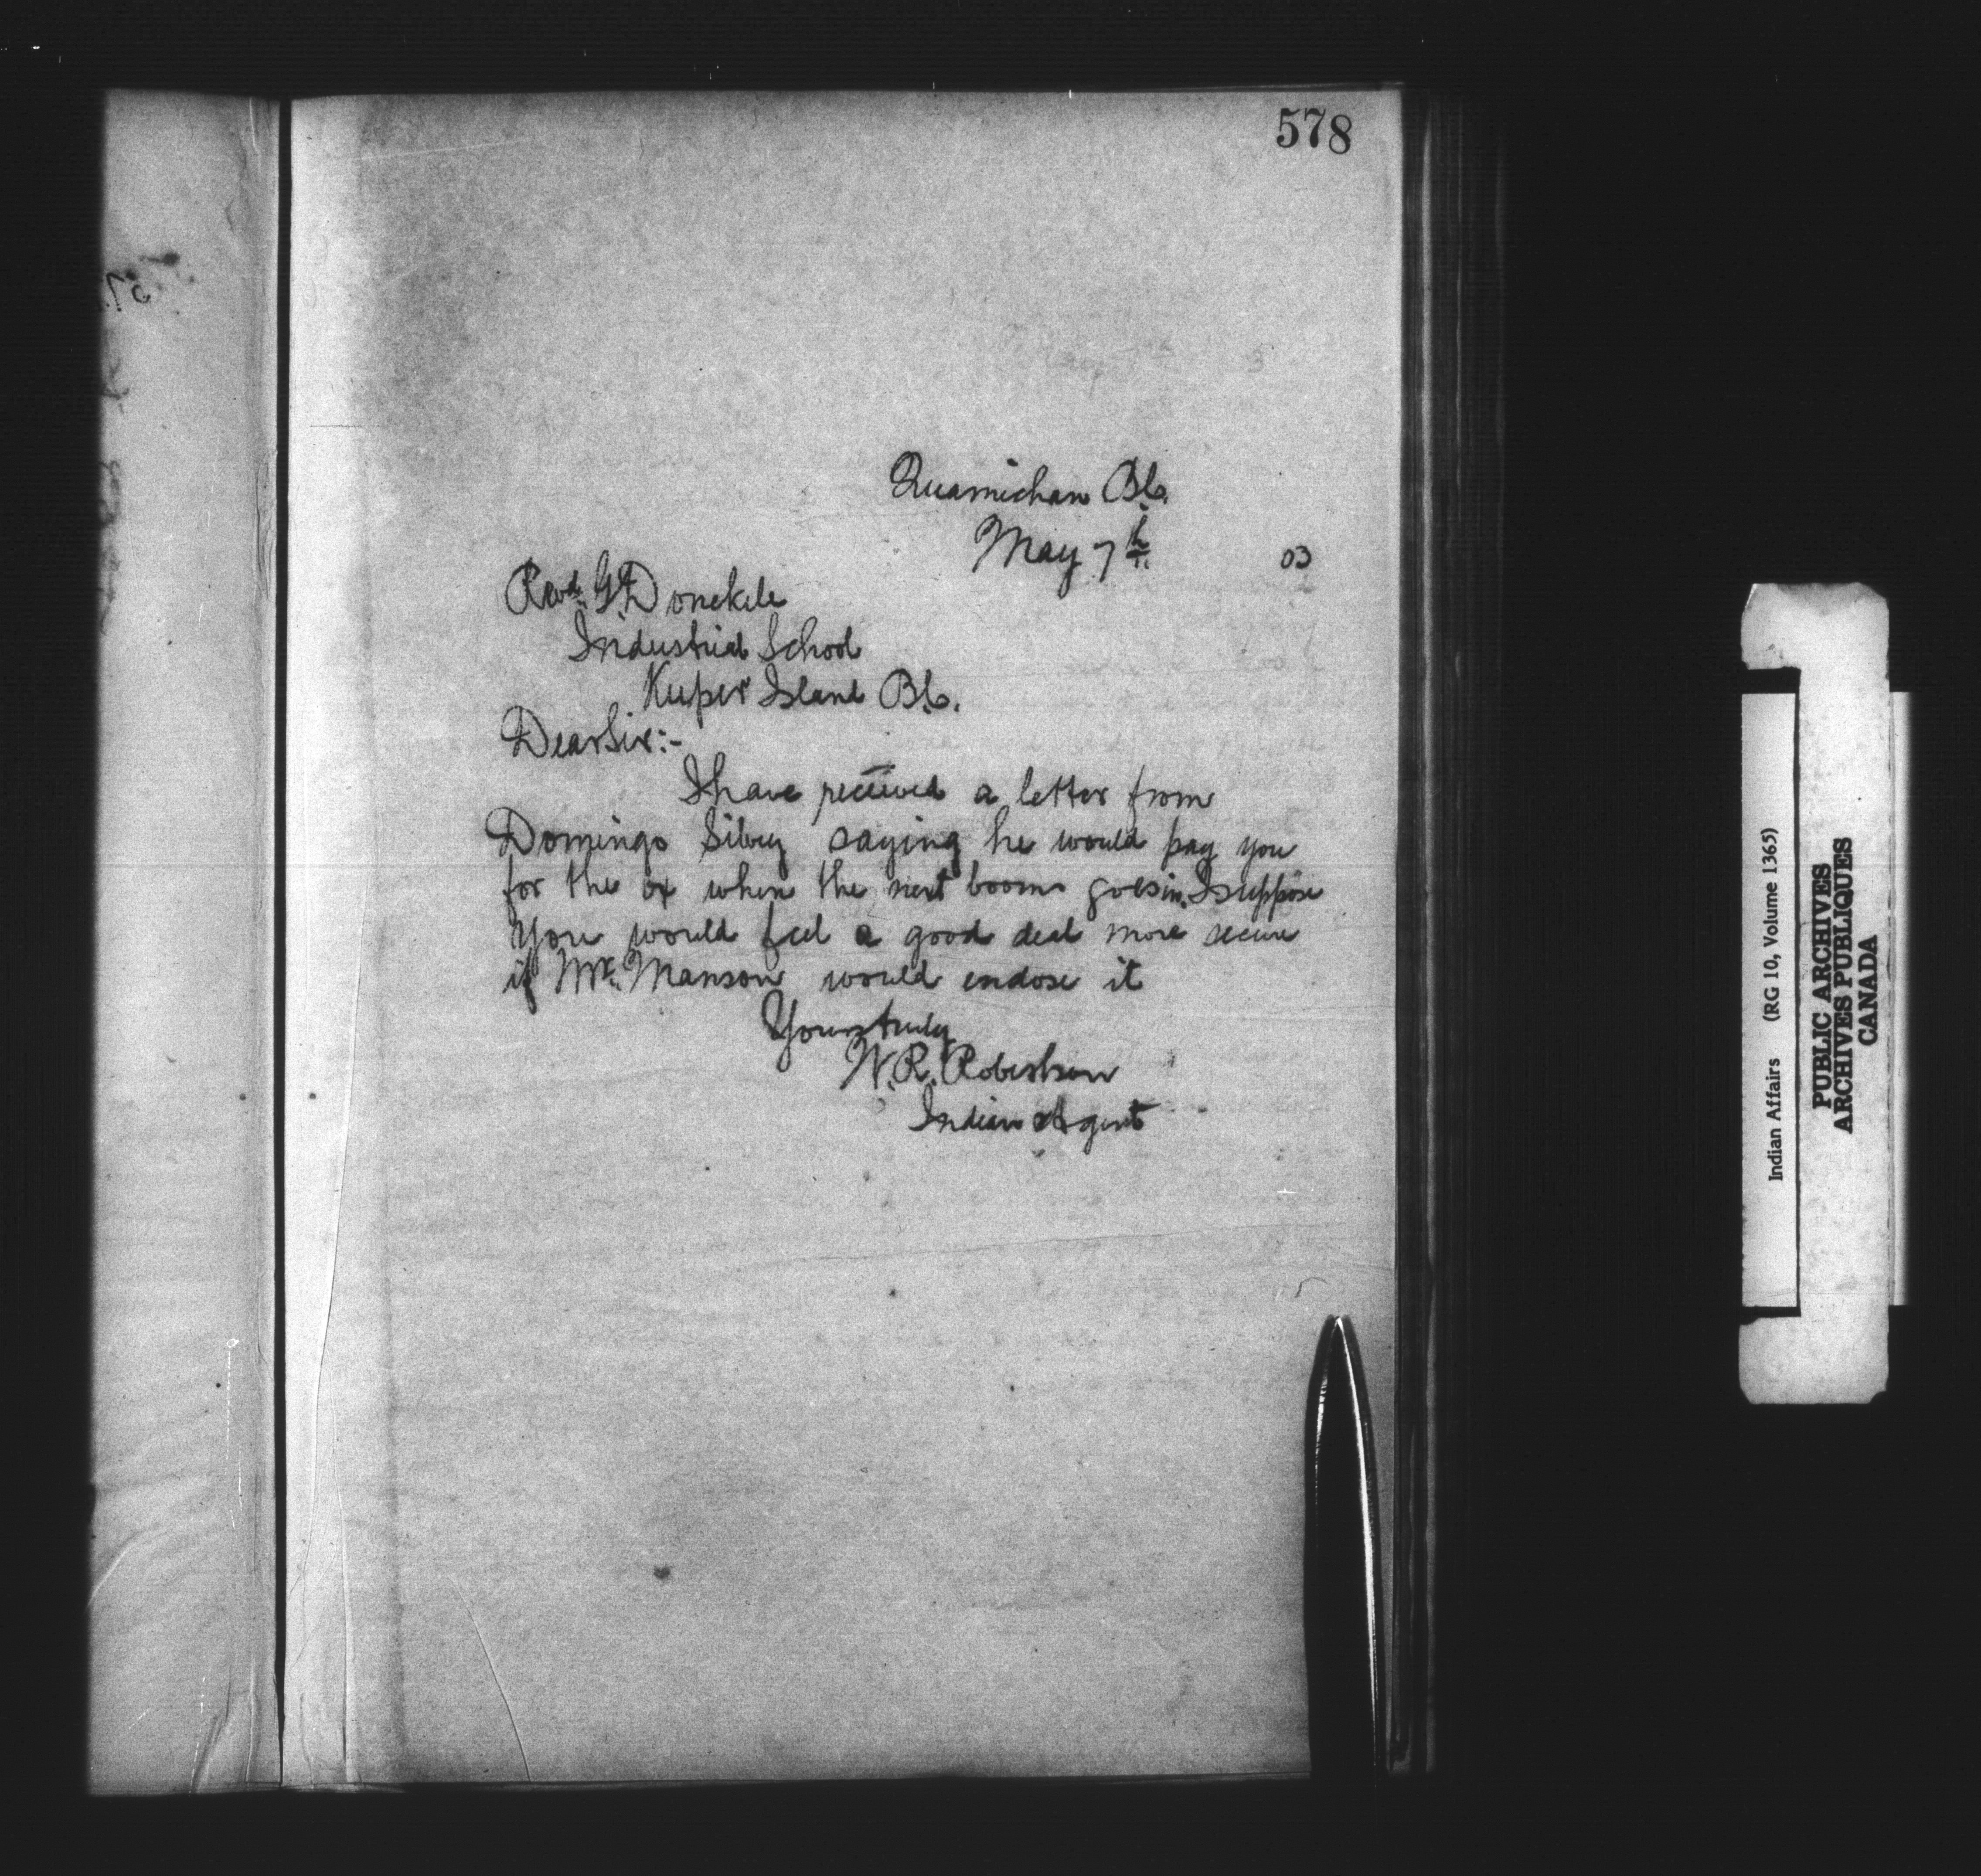 578
Quamichan B.C.
May 7th 03
Revd. G. Donckele
Industrial School
Kuper Island B.C.
Dear Sir:-
I have received a letter from
Domingo Silvey saying he would pay you
for the ox when the next boom goes in. I suppose
you would feel a good deal more secure
if Mr. Manson would endose it
Yours truly
W. R. Robertson
Indian Agent
Indian Affairs (RG 10, Volume 1365)
PUBLIC ARCHIVES
ARCHIVES PUBLIQUES
CANADA